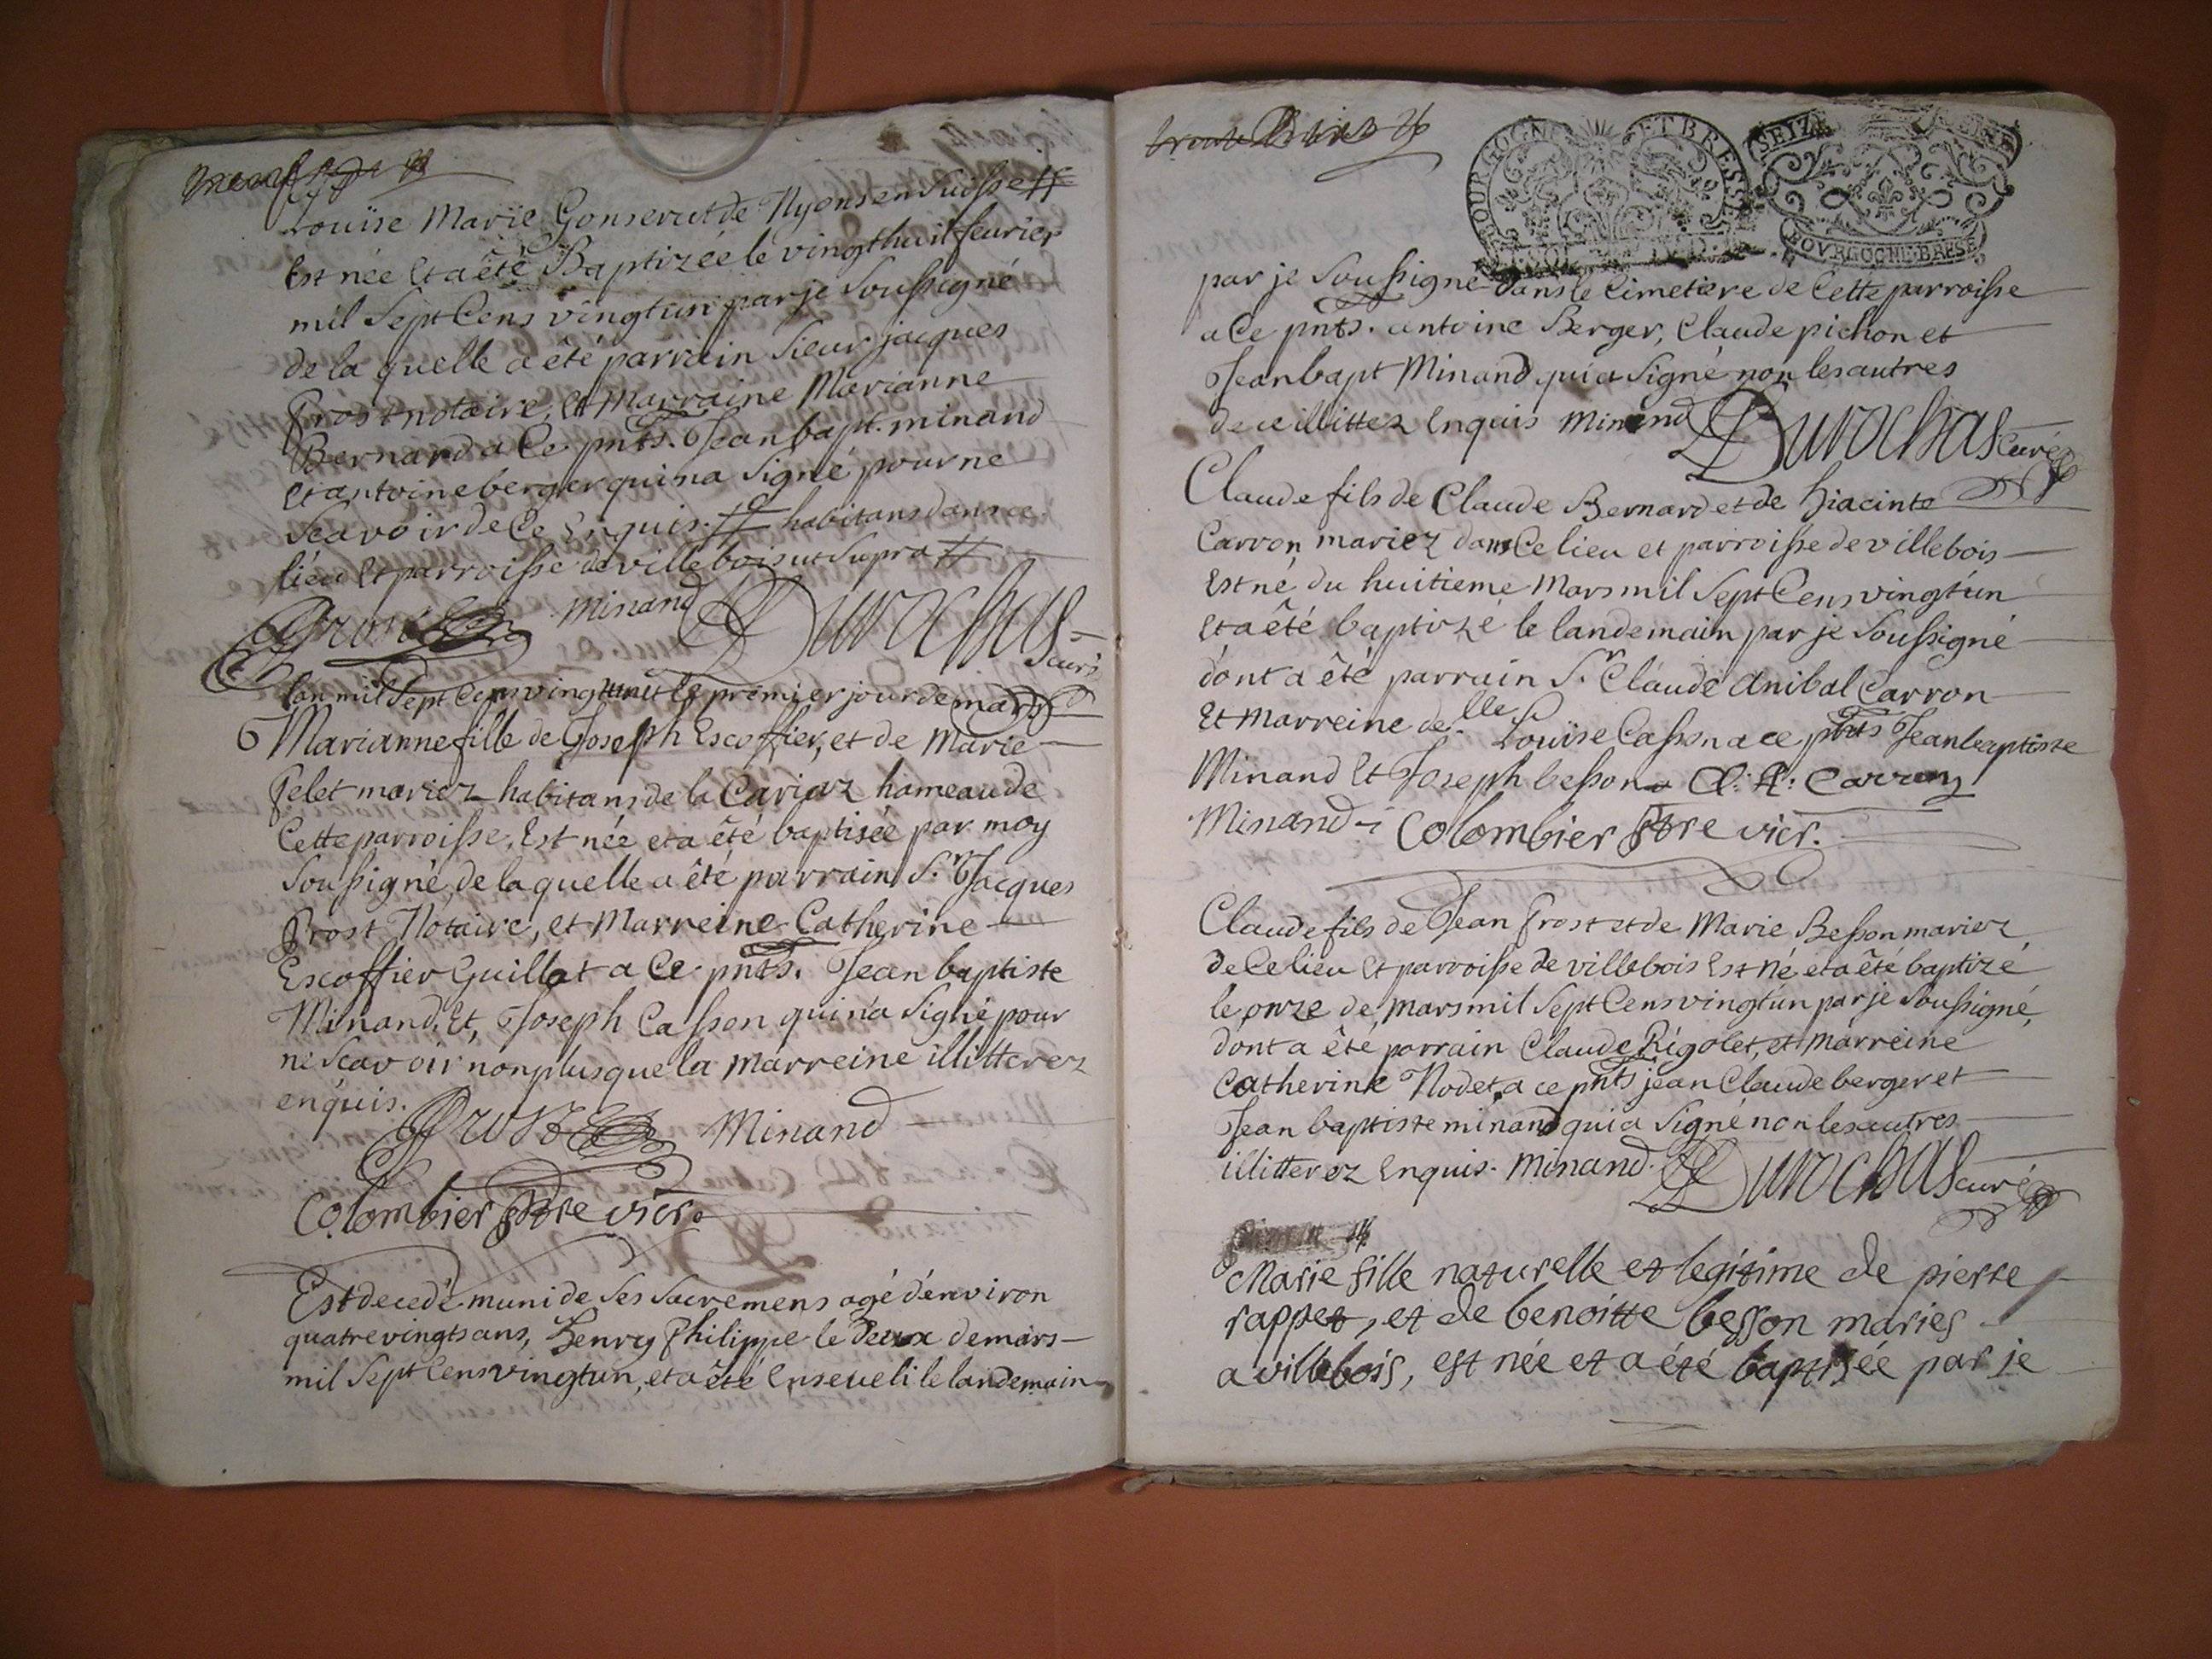 Louïse Marïe Gonserut de Nyons en Suisse #
Est née Et a êté Baptizée le vingthuit feurier
mil Sept Cens vingtun par je Soussigné
de la quelle a êté parrain Sieur jacques
Prost notaire, et Marraine Marianne
Bernard a Ce pnts. Jean bapt. minand
Et antoine berger qui na Signé pour ne
Scavoir de Ce Enquis. # habitans dans ce
lieu Et parroisse de villebois ut Supra #
Prost minand Durochas
curé
lan mil Sept Cens vingtun et le premier jour de mars
Marianne fille de Joseph Escoffier, et de Marie
felet mariez habitans de la Cariaz hameau de
Cette parroisse, Est née et a êté baptisée par moy
Soussigné, de laquelle a êté parrain Sr. Jacques
Prost Notaire, et Marreine Catherine
Escoffier Guillot a Ce pnts. Jean baptiste
Minand, Et, Joseph Casson qui n'a Signé pour
ne Scavoir non plus que la marreine illitterez
enquis.
Prost Minand
Colombier ptre vicr.
Est decedé muni de Ses Sacremens agé d'environ
quatre vingts ans, Henry Philippe le deux de mars
mil Sept Cens vingtun, et a êté Enseveli le landemain
BOURGOGNE ET BRESSE
SEIZE
BOVRGOGNE BRESE
par je Soussigné dans le Cimetiere de Cette parroisse
a Ce pnts. antoine Berger, Claude pichon et
Jean bapt Minand qui a Signé non les autres
de ce illittez Enquis Minand Durochas curé
Claude fils de Claude Bernard et de hiacinte
Carron mariez dans Ce lieu et parroisse de villebois
Est né du huitieme Mars mil Sept Cens vingtun
Et a êté baptizé le landemain par je Soussigné
dont a êté parrain Sr. Claude Anibal Carron
Et Marreine delle. Louïse Casson a ce pnts Jean baptiste
Minand Et Joseph besson C: A: Carron
Minand Colombier ptre vicr.
Claude fils de Jean Prost et de Marie Besson mariez
de Ce lieu Et parroisse de villebois Est né et a êté baptizé
le onze de mars mil Sept Cens vingtun par je Soussigné,
dont a êté parrain Claude Rigolet, et marreine
Catherine Nodet, a ce pnts jean Claude berger et
Jean baptiste minand qui a Signé non les autres
illitterez Enquis. Minand. Durochas curé
Marie fille naturelle et legitime de pierre
rappet, et de benoitte besson maries
a villebois, est née et a été baptisée par je